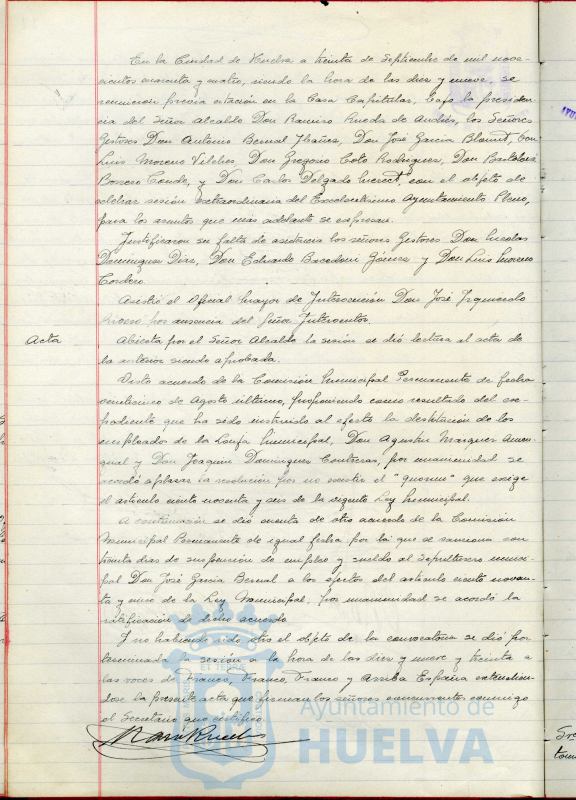 En la Ciudad de Huelva a treinta de Septiembre de mil nove-
cientos cuarenta y cuatro, siendo la hora de las diez y nueve, se
reunieron previa citación en la Casa Capitular, bajo la presiden-
cia del Señor Alcalde Don Ramiro Rueda de Andrés, los Señores
Gestores Don Antonio Bernal Ibañez, Don José Garcia Don
Luis Moreno Vilches, Don Gregorio Coto Rodriguez, Don Bartolomé
Borrero Conde, y Don Carlos Delgado con el objeto de
celebrar sesión extraordinaria del Excelentisimo Ayuntamiento Pleno,
para los asuntos que más adelante se expresan.
Justificaron su falta de asistencia los señores Gestores Don Nicolas
Dominguez Diaz, Don Eduardo Gómez y Don Luis Moreno
Cordero.
Asistió el Oficial Mayor de Intervención Don José Izquierdo
por ausencia del Señor Interventor.
Acta
Abierta por el Señor Alcalde la sesión se dió lectura al acta de
la anterior siendo aprobada.
Visto acuerdo de la Comisión Municipal Permanente de fecha
veinticinco de Agosto ultimo, proponiendo como resultado del ex-
pediente que ha sido instruido al efecto la destitución de los
empleados de la Municipal, Don Agustin Marquez
y Don Joaquin Dominguez Contreras, por unanimidad se
acordó aplazar la resolución por no existir el "quorum" que exige
el articulo ciento noventa y seis de la vigente Ley Municipal.
A continuación se dió cuenta de otro acuerdo de la Comisión
Municipal Permanente de igual fecha por la que se sanciona con
treinta dias de suspensión de empleo y sueldo al Sepulturero munici-
pal Don José Garcia Bernal a los efectos del articulo ciento noven-
ta y de la Ley Municipal, por unanimidad se acordó la
ratificación de dicho acuerdo
Y no habiendo sido otro el objeto de la convocatoria se dió por
terminada la sesión a la hora de las diez y nueve y treinta a
las voces de Franco, Franco, Franco y Arriba España extendien-
dose la presente acta que firman los señores concurrentes conmigo
el Secretario que certifico.
EL TERROR
Ayuntamiento de
HUELVA